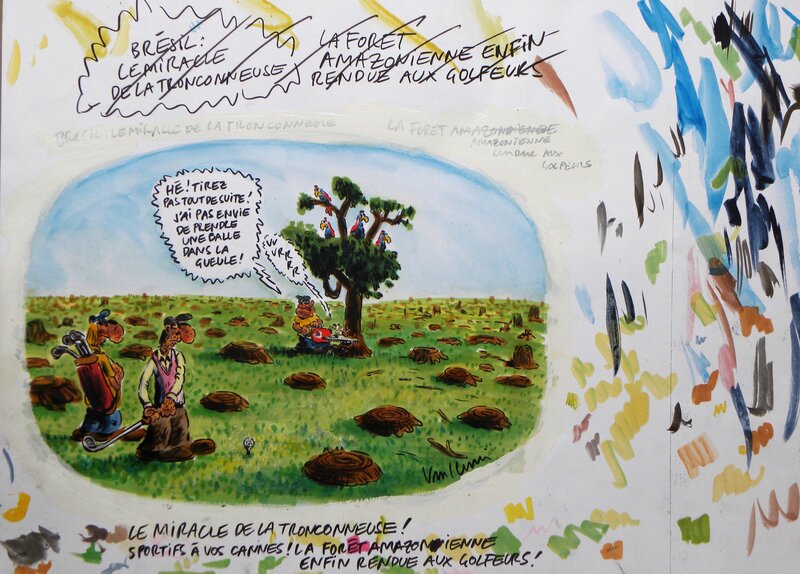 BRÉSIL:
LE MIRACLE
DE LA TRONCONNEUSE
LA FORET
AMAZONIENNE ENFIN
RENDUE AUX GOLFEURS
BRESIL: LE MIRACLE DE LA TRONCONNEUSE
LA FORET AMAZONIENNE
AMAZONIENNE
rendue AUX
GOLFEURS
HÉ! TIREZ
PAS TOUT DE SUITE!
J'AI PAS ENVIE
DE PRENDRE
UNE BALLE
DANS LA
GUEULE!
VV
VRR
RR
LE MIRACLE DE LA TRONCONNEUSE!
SPORTIFS À VOS CANNES! LA FORET AMAZONIENNE
ENFIN RENDUE AUX GOLFEURS!